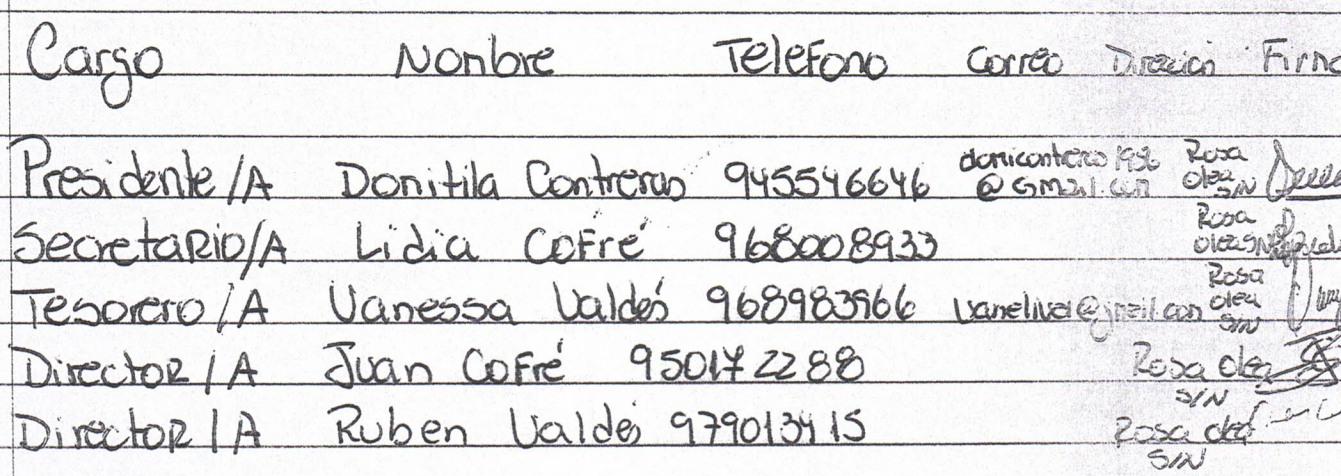 Cargo Nombre Telefono Correo Direccion Firma
Presidente/A Donitila Contreras 945546646 donicontrero1956@Gmail.com Rosa olea S/N
Secretario/A Lidia Cofré 968008933 Rosa olea S/N
Tesorero/A Vanessa Valdés 968983966 vanelival@gmail.com Rosa olea S/N
Director/A Juan Cofré 950172288 Rosa olea S/N
Director/A Ruben Valdés 979013415 Rosa olea S/N